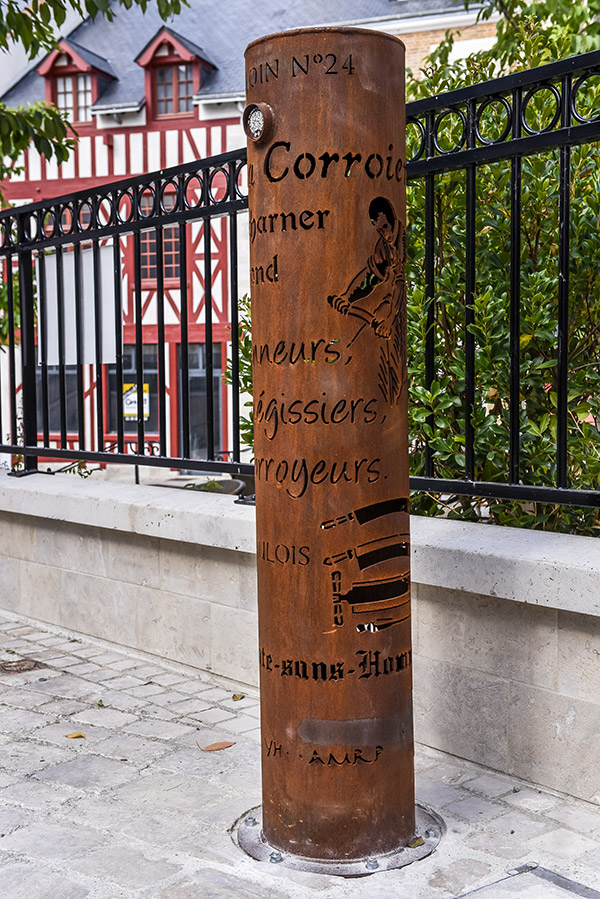 OIN N°24
Corroie
arner
nd
nneurs,
égissiers,
rroyeurs.
ULOIS
te-sans-Hom
YH.. AMRP